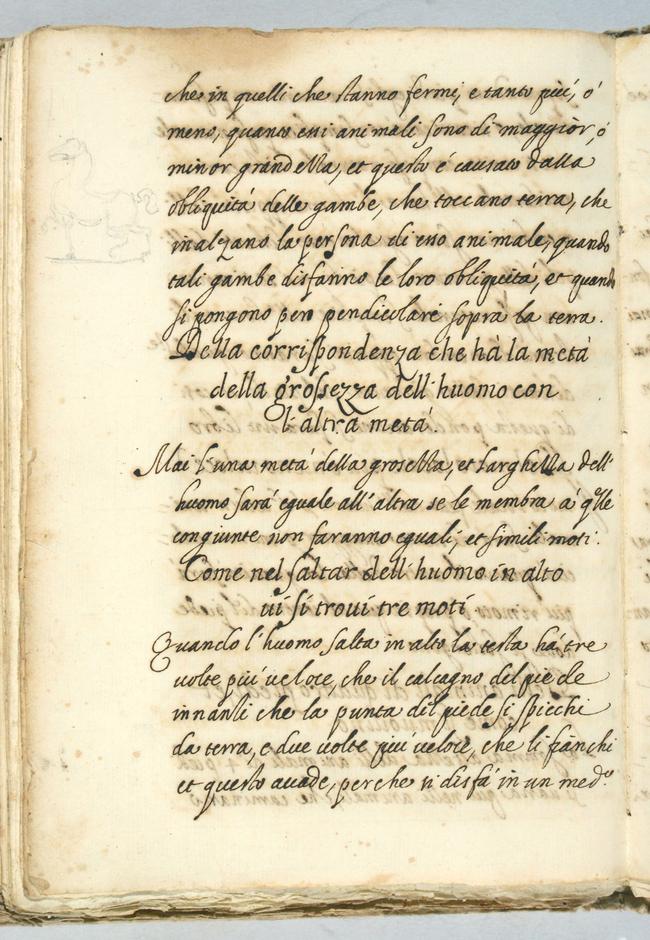 che in quelli che stanno fermi, e tanto piú, ó
meno, quanto essi animali sono di maggior, ó
minor grandezza, et questo é causato dalla
obliquitá delle gambe, che toccano terra, che
inalzano la persona di esso animale, quando
tali gambe disfanno le loro obliquitá, et quando
si pongono perpendicolari sopra la terra.
Della corrispondenza che hà la metà
della grossezza dell'huomo con
l'altra metá.
Mai l'una metá della grosezza, et larghezza dell'
huomo sará eguale all'altra se le membra a' qlle
congiunte non faranno eguali, et simili moti.
Come nel saltar dell'huomo in alto
vi si trovi tre moti
Quando l'huomo salta in alto la testa há tre
volte piú veloce, che il calcagno del piede
innanzi che la punta del piede si spicchi
da terra, e due volte piú veloce, che li fianchi
et questo avade, perche si disfá in un medo.